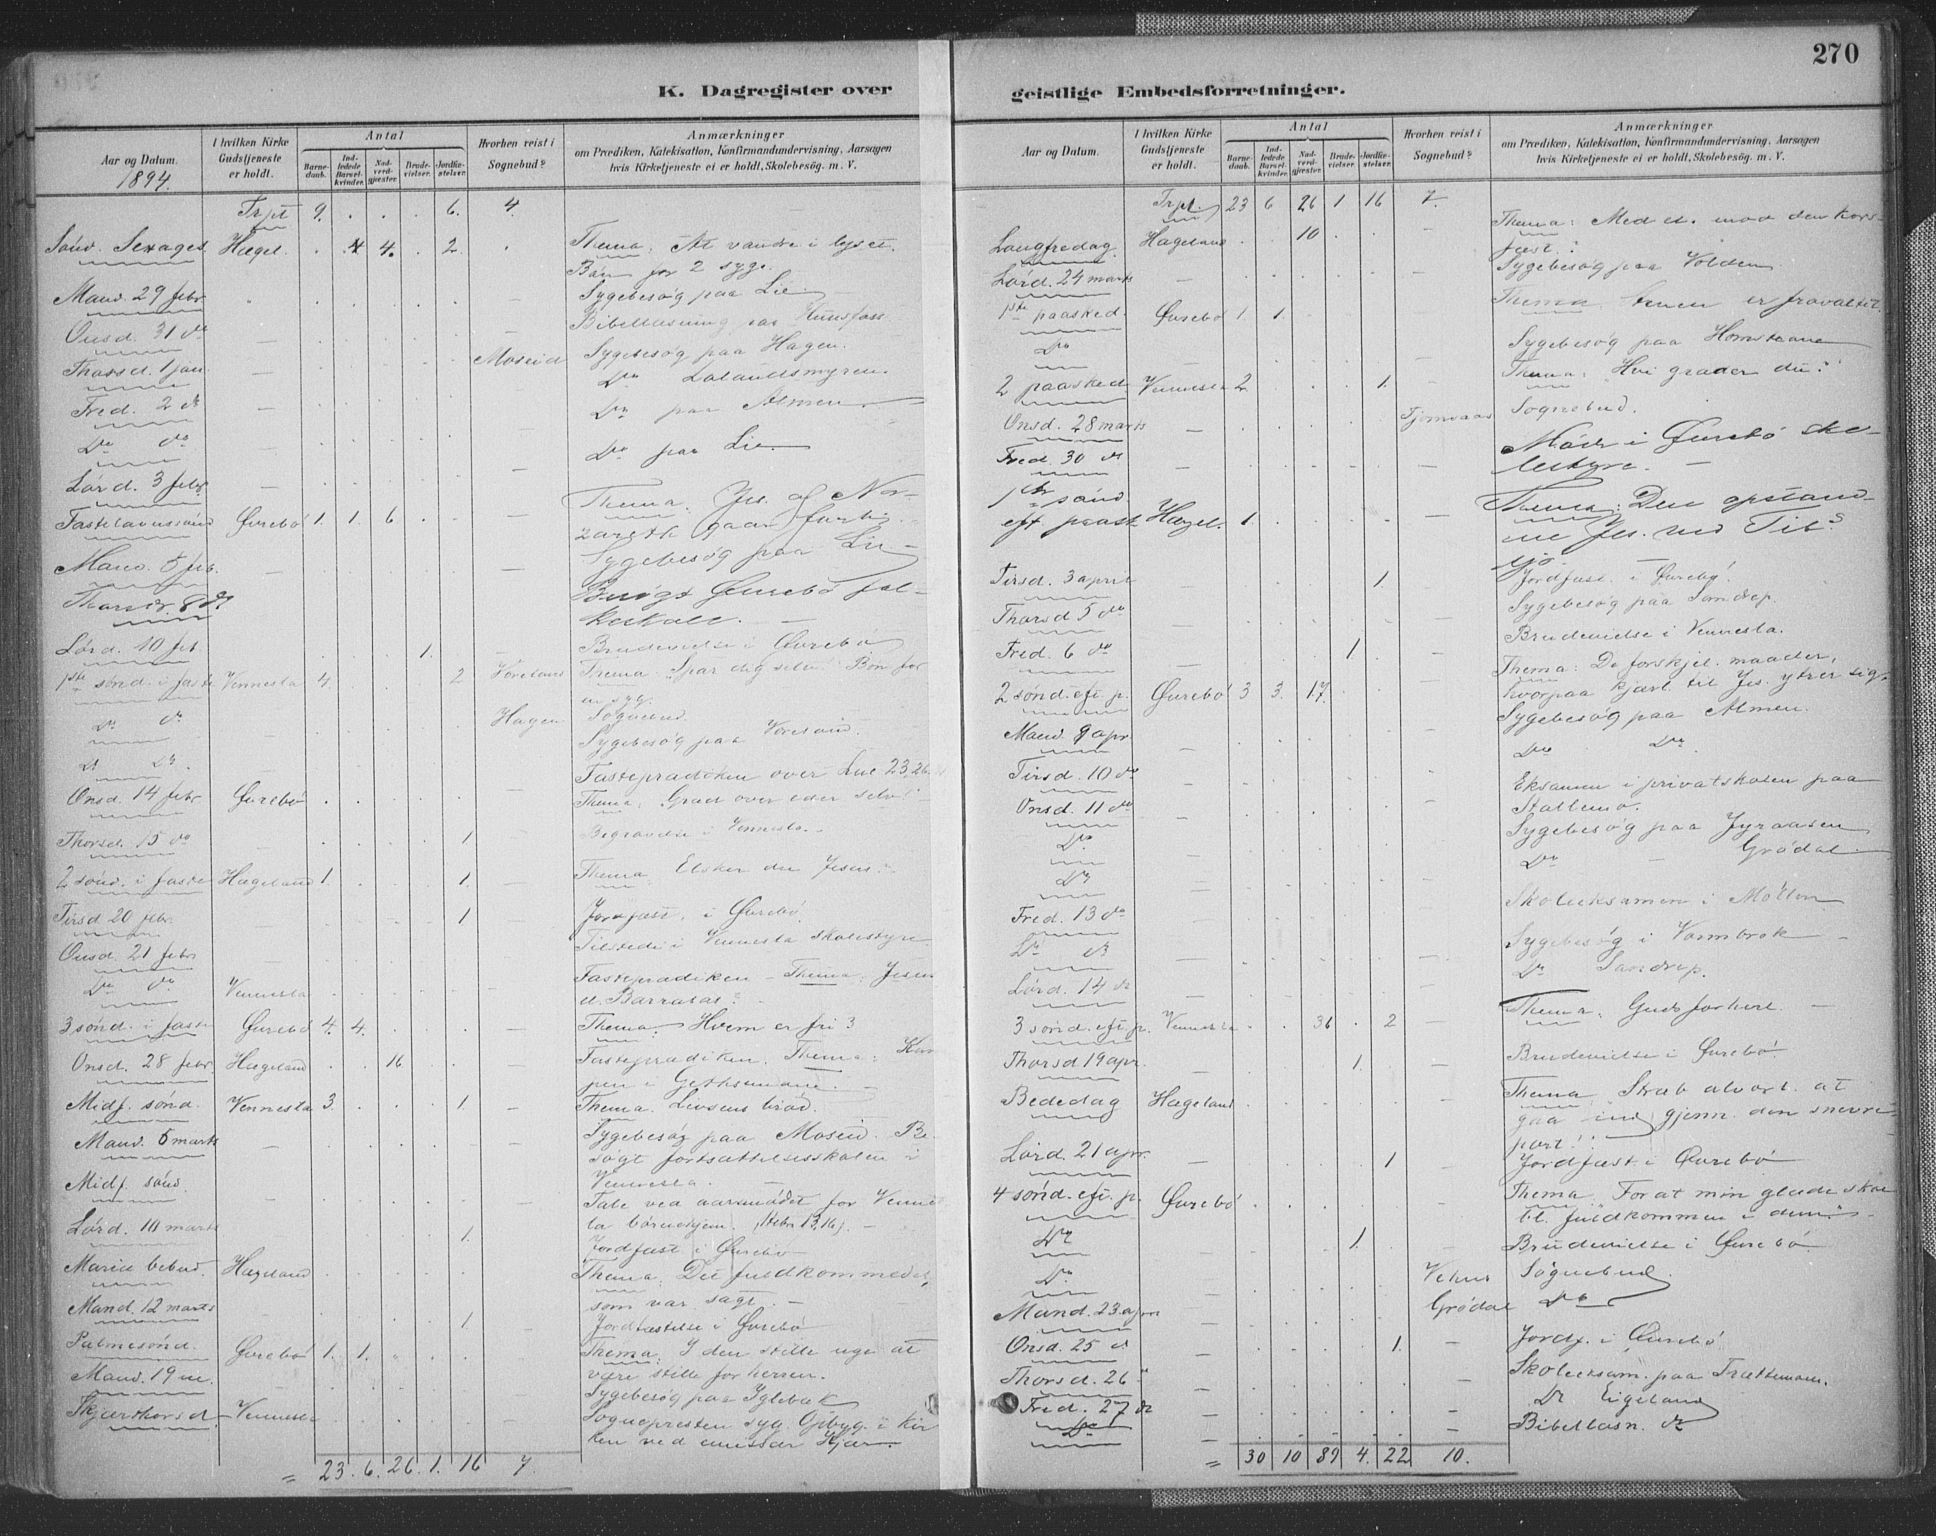 270
K. Dagregister over geistlige Embedsforretninger.
Aar og Datum. 1894. | I hvilken Kirke Gudstjeneste er holdt. | Antal | Barnedaab. | Indledede Barselkvinder. | Nadverdgjester. | Brudevielser. | Jordfæstelser. | Hvorhen reist i Sognebud? | Anmærkninger om Prædiken, Katekisation, Konfirmandundervisning, Aarsagen hvis Kirketjeneste ei er holdt, Skolebesøg. m. V.
Trpt 9. . . . 6. 4.
Sønd. Sexages. Hægel. . . 4. . 2. . Thema: At vandre i lyset.
Bøn for 2 syge.
Mand. 29 Sygebesøg paa Lie
Onsd. 31 do Bibellæsning paa Hunsfoss
Thorsd. 1 Moseid Sygebesøg paa Hagen.
Fred. 2 do Do Lalandsmyren
Do do Do paa Almen
Lørd. 3 febr. Do paa Lie
Fastelavnssønd Øvrebø 1. 1. 6 . . - Thema: Jes. af Nazareth gaar forbi
Mand. 5 feb. Sygebesøg paa Lie
Thorsd. 8 do Besøgt Øvrebø folkeskole. -
Lørd. 10 feb. 1. Brudevielse i Øvrebø
1ste sønd. i faste Vennesla 4. 2 Thema: Spar dig selv! Bøn for
en syg.
Do do Hagen Sognebud.
Do Do. Sygebesøg paa
Onsd. 14 febr Øvrebø Fasteprædiken over Luc 23,26
Thema: Græd over eder selv!
Thorsd. 15 do 1 Begravelse i Vennesla.
2 sønd. i faste Hægeland 1. 1. Thema: Elsker du Jesus?
Tirsd 20 febr. 1 Jordfæst. i Øvrebø.
Onsd. 21 febr Tilstede i Vennesla skolestyre
Do do Vennesla Fasteprædiken - Thema: Jesus
el. Barrabas?
3 sønd. i faste Øvrebø 4. 4. Thema: Hvem er fri?
Onsd. 28 febr. Hægeland 16 Fasteprædiken. Thema: Kampen i Gethsemane. -
Midf. sønd. Vennesla 3. 1 Thema. Livsens brød.
Mand. 5 marts Sygebesøg paa Moseid. Besøgt fortsættelsesskolen i
Vennesla. -
Midf. sønd. Tale ved aarsmødet for Vennesla børnehjem. (Hebr 13,16). -
Lørd. 10 marts 1. Jordfæst. i Øvrebø
Mariæ bebud. Hægeland Thema: Det fuldkommedes,
som var sagt. -
Mand. 12 marts 1. Jordfæstelse i Øvrebø
Palmesønd. Øvrebø 1. 1. Thema: I den stille uge at
være stille for herren.
Mand. 19 m. Sygebesøg paa Iglebæk
Skjærthorsd Vennesla Sognepresten syg. Opbyg. i kirken ved emissær Kjær.
= 23. 6. 26. 1. 16 7.
Aar og Datum. | I hvilken Kirke Gudstjeneste er holdt. | Antal | Barnedaab. | Indledede Barselkvinder. | Nadverdgjester. | Brudevielser. | Jordfæstelser. | Hvorhen reist i Sognebud? | Anmærkninger om Prædiken, Katekisation, Konfirmandundervisning, Aarsagen hvis Kirketjeneste ei er holdt, Skolebesøg. m. V.
Trpt. 23 6 26 1 16 7.
Langfredag Hægeland 10 Thema: Med el. mod den korsfæst.?
Lørd. 24 marts Sygebesøg paa Volden
1ste paasked. Øvrebø 1 1. Thema Stenen er fravæltet.
Do Sygebesøg paa Homsteane
2 paasked. Vennesla 2 1. Thema: Hvi græder du?
Onsd. 28 marts Sognebud.
Fred. 30 do Møde i Øvrebø skolestyre. -
1ste sønd eft paaske Hægel. 1. Thema: Den opstandne Jes. ved Tib.s
sjø. -
Tirsd. 3 april 1. Jordfæst. i Øvrebø.
Thorsd 5 do Sygebesøg paa Sandrip.
Fred. 6 do 1 Brudevielse i Vennesla.
2 sønd. eft. p. Øvrebø 3 3. 17. Thema: De forskjel. maader,
hvorpaa kjærl. til Jes. ytrer sig.
Mand. 9 apr. Sygebesøg paa Almen.
Tirsd. 10 do Do Do
Onsd. 11 do Eksamen i privatskolen paa
Stallemo.
Do Sygebesøg paa Jyraasen
Do Do - Grødal
Fred. 13 do Skoleeksamen i
Do do Sygebesøg i Vormbrok
Lørd. 14 do Do Sandrip.
3 sønd. eft. p. Vennesla 36 2 Thema: Guds forhere. -
Thorsd 19 apr. 1. Brudevielse i Øvrebø
Bededag Hægeland Thema: Stræb alvorl. at
gaa ind gjenn. den snevre
port! -
Lørd. 21 apr. 1 Jordfæst. i Øvrebø
4 sønd. eft. p. Øvrebø Thema. For at min glæde skal
bl. fuldkommen i dem.
Do 1. Brudevielse i Øvrebø
Do. Sognebud
Mand. 23. april Grødal Do
Onsd. 25 do 1. Jordf. i Øvrebø.
Thorsd. 26 " Skoleeksam. paa Drættemoen.
Fred. 27 do Do Eigeland
Do Bibellæsn. do
= 30 10 89 4. 22 10.